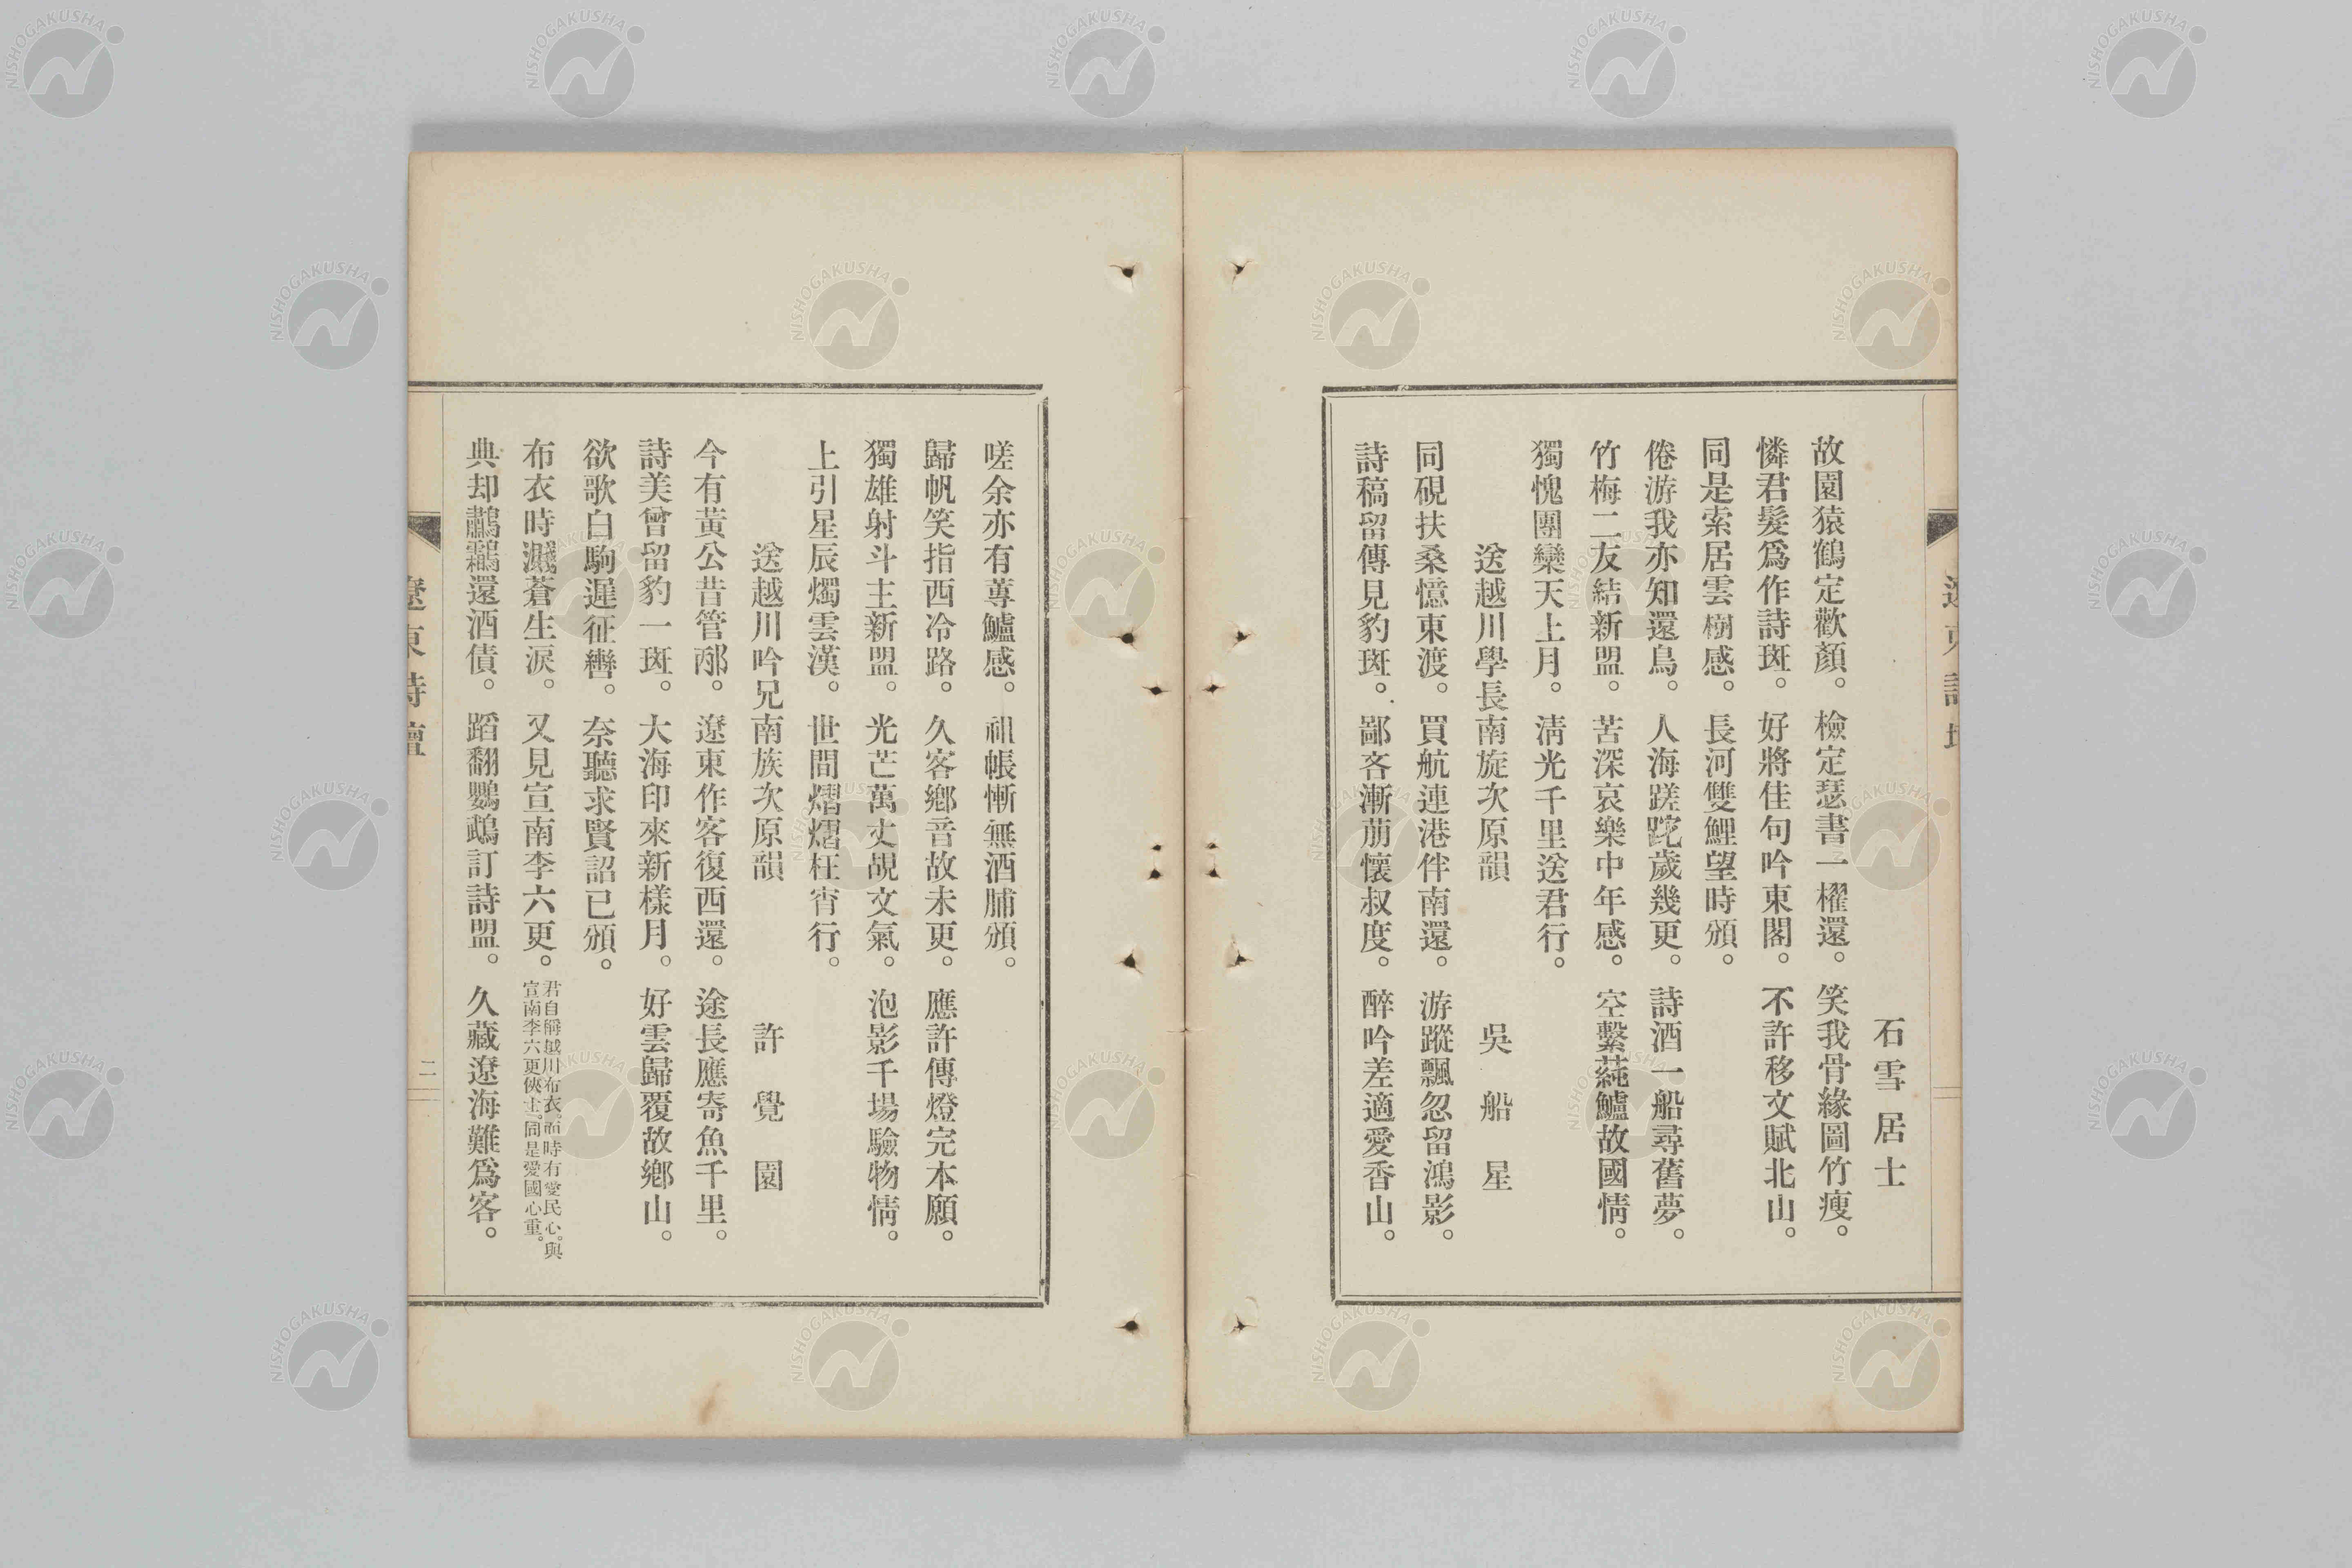 石雪居士
故園猿鶴定歡顏。檢定瑟書一櫂還。笑我骨緣圖竹瘦。
憐君髮爲作詩斑。好將佳句吟東閣。不許移文賦北山。
同是索居雲樹感。長河雙鯉望時頒。
倦游我亦知還鳥。人海蹉跎歲幾更。詩酒一船尋舊夢。
竹梅二友結新盟。苦深哀樂中年感。空繫蒓鱸故國情。
獨愧團欒天上月。淸光千里送君行。
送越川學長南旋次原韻 吳船星
同硯扶桑憶東渡。買航連港伴南還。游蹤飄忽留鴻影。
詩稿留傳見豹斑。鄙吝漸萠懷叔度。醉吟差適愛香山。
嗟余亦有蓴鱸感。祖帳慚無酒脯頒。
歸帆笑指西冷路。久客鄕音故未更。應許傳燈完本願。
獨雄射斗主新盟。光芒萬丈覘文氣。泡影千場驗物情。
上引星辰燭雲漢。世間熠熠枉宵行。
送越川吟兄南族次原韻 許覺園
今有黃公昔管邴。遼東作客復西還。途長應寄魚千里。
詩美曾留豹一斑。大海印來新樣月。好雲歸覆故鄕山。
欲歌白駒遲征轡。奈聽求賢詔已頒。
布衣時濺蒼生淚。又見宣南李六更。君自稱越川布衣。而時有愛民心。與宣南李六更俠士。同是愛國心重。
典却鷫鸘還酒債。蹈翻鸚鵡訂詩盟。久藏遼海難爲客。
遼東詩壇
二
NISHOGAKUSHA